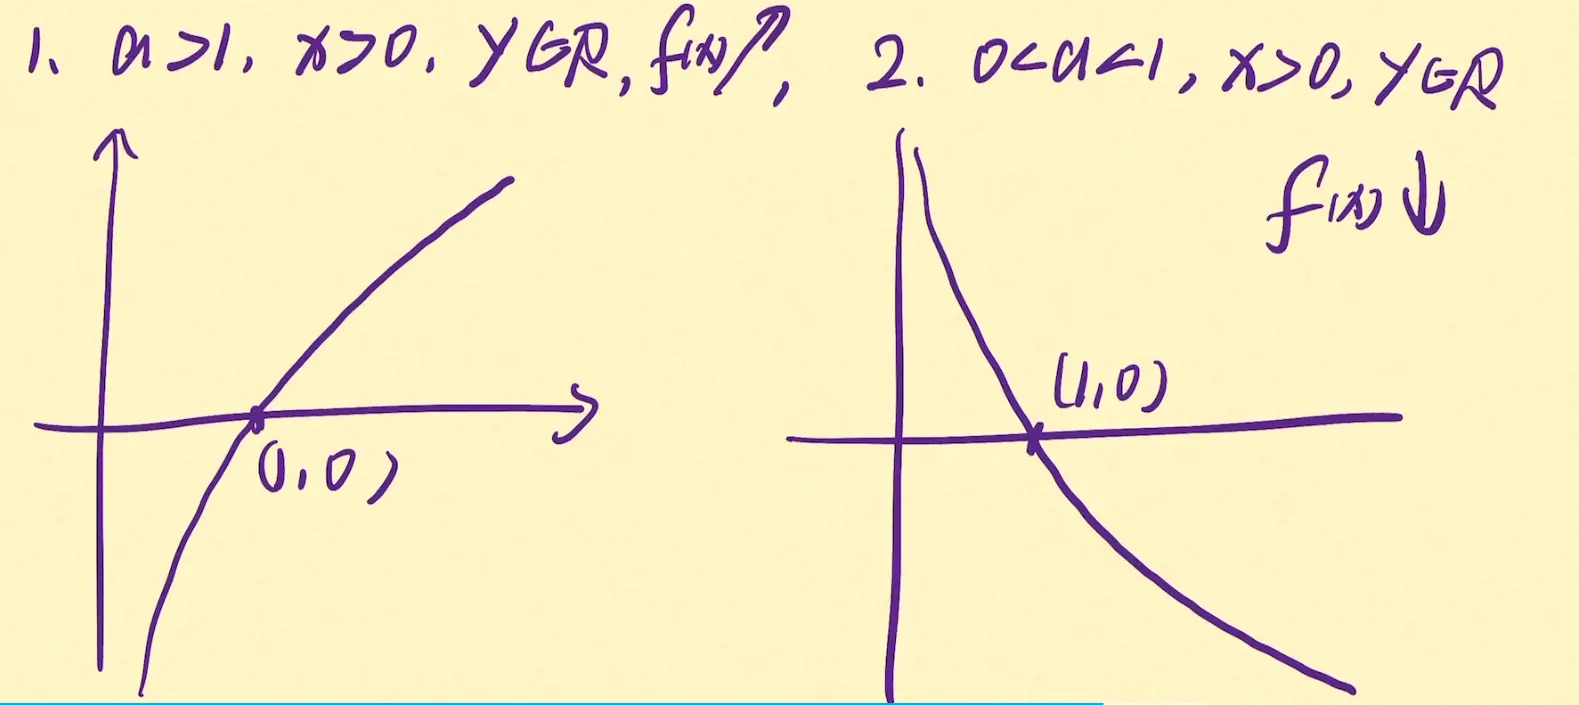 1. a>1, x>0, y∈R, f(x)↗,
2. 0<a<1, x>0, y∈R
f(x)↓
(1,0)
(1,0)